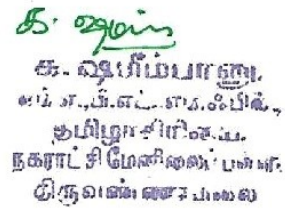 க. ஷமீம்பானு,
எம்.ஏ.,பி.எட்.,எம்.ஃபில்.,
தமிழாசிரியை,
நகராட்சி மேனிலைப் பள்ளி
திருவண்ணாமலை